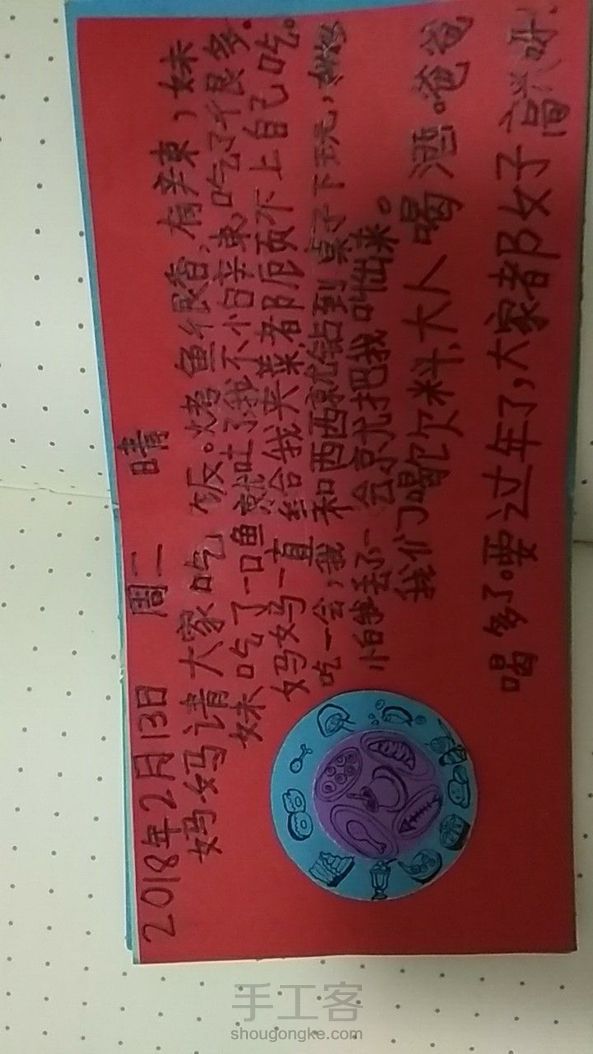 2018年2月13日 周二 晴
妈妈请大家吃饭。烤鱼很香,有辛辣,妹
妹吃了一口鱼就吐了我不小白辛辣,吃了很多。
妈妈一直给我夹菜,都顾不上自己吃。
吃一会,我和西西就钻到桌子下玩,
小白我丢了一会京尤把我叫出来。
我们喝饮料,大人喝酒。爸爸
喝多了。要过年了,大家都好高兴呀!
手工客
shougongke.com